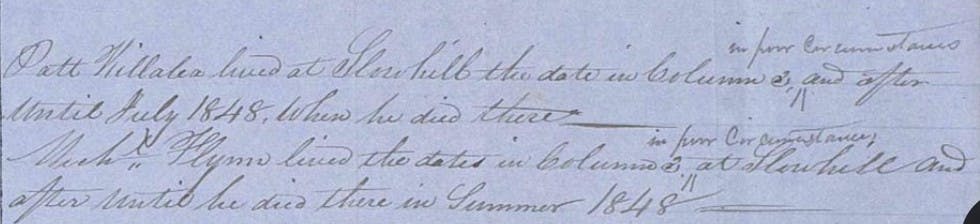 in poor Circumstances
Patt Killalea lived at Slowhill the date in Column 2, and after
until July 1848, when he died there
in poor Circumstances,
Mich.l Flynn lived the dates in Column 2, at Slowhill and
after until he died there in Summer 1848